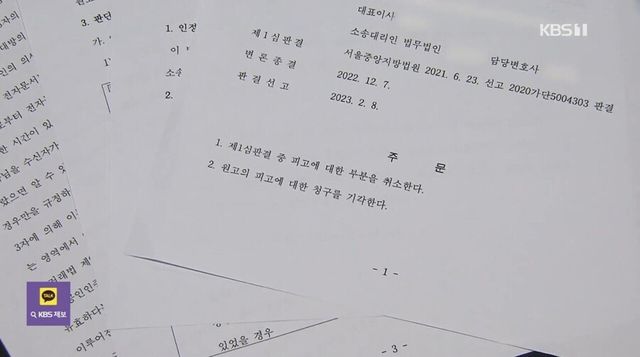 KBS 1
대표이사
소송대리인 법무법인
담당변호사
제1심판결 서울중앙지방법원 2021. 6. 23. 선고 2020가단5004303 판결
변론종결 2022. 12. 7.
판결선고 2023. 2. 8.
주 문
1. 제1심판결 중 피고에 대한 부분을 취소한다.
2. 원고의 피고에 대한 청구를 기각한다.
- 1 -
3. 판단
가.
1. 인정
이
소
2.
자의
대방의
인의 의
전자문서
로부터 전자
한 시간이 있
님을 수신자가
았으면 알 수
경우만을 규정하
3자에 의해 이
는 영역에서
거래법 제
공인인
유효하다
이루어
있었을 경우
- 3 -
TALK
KBS 제보